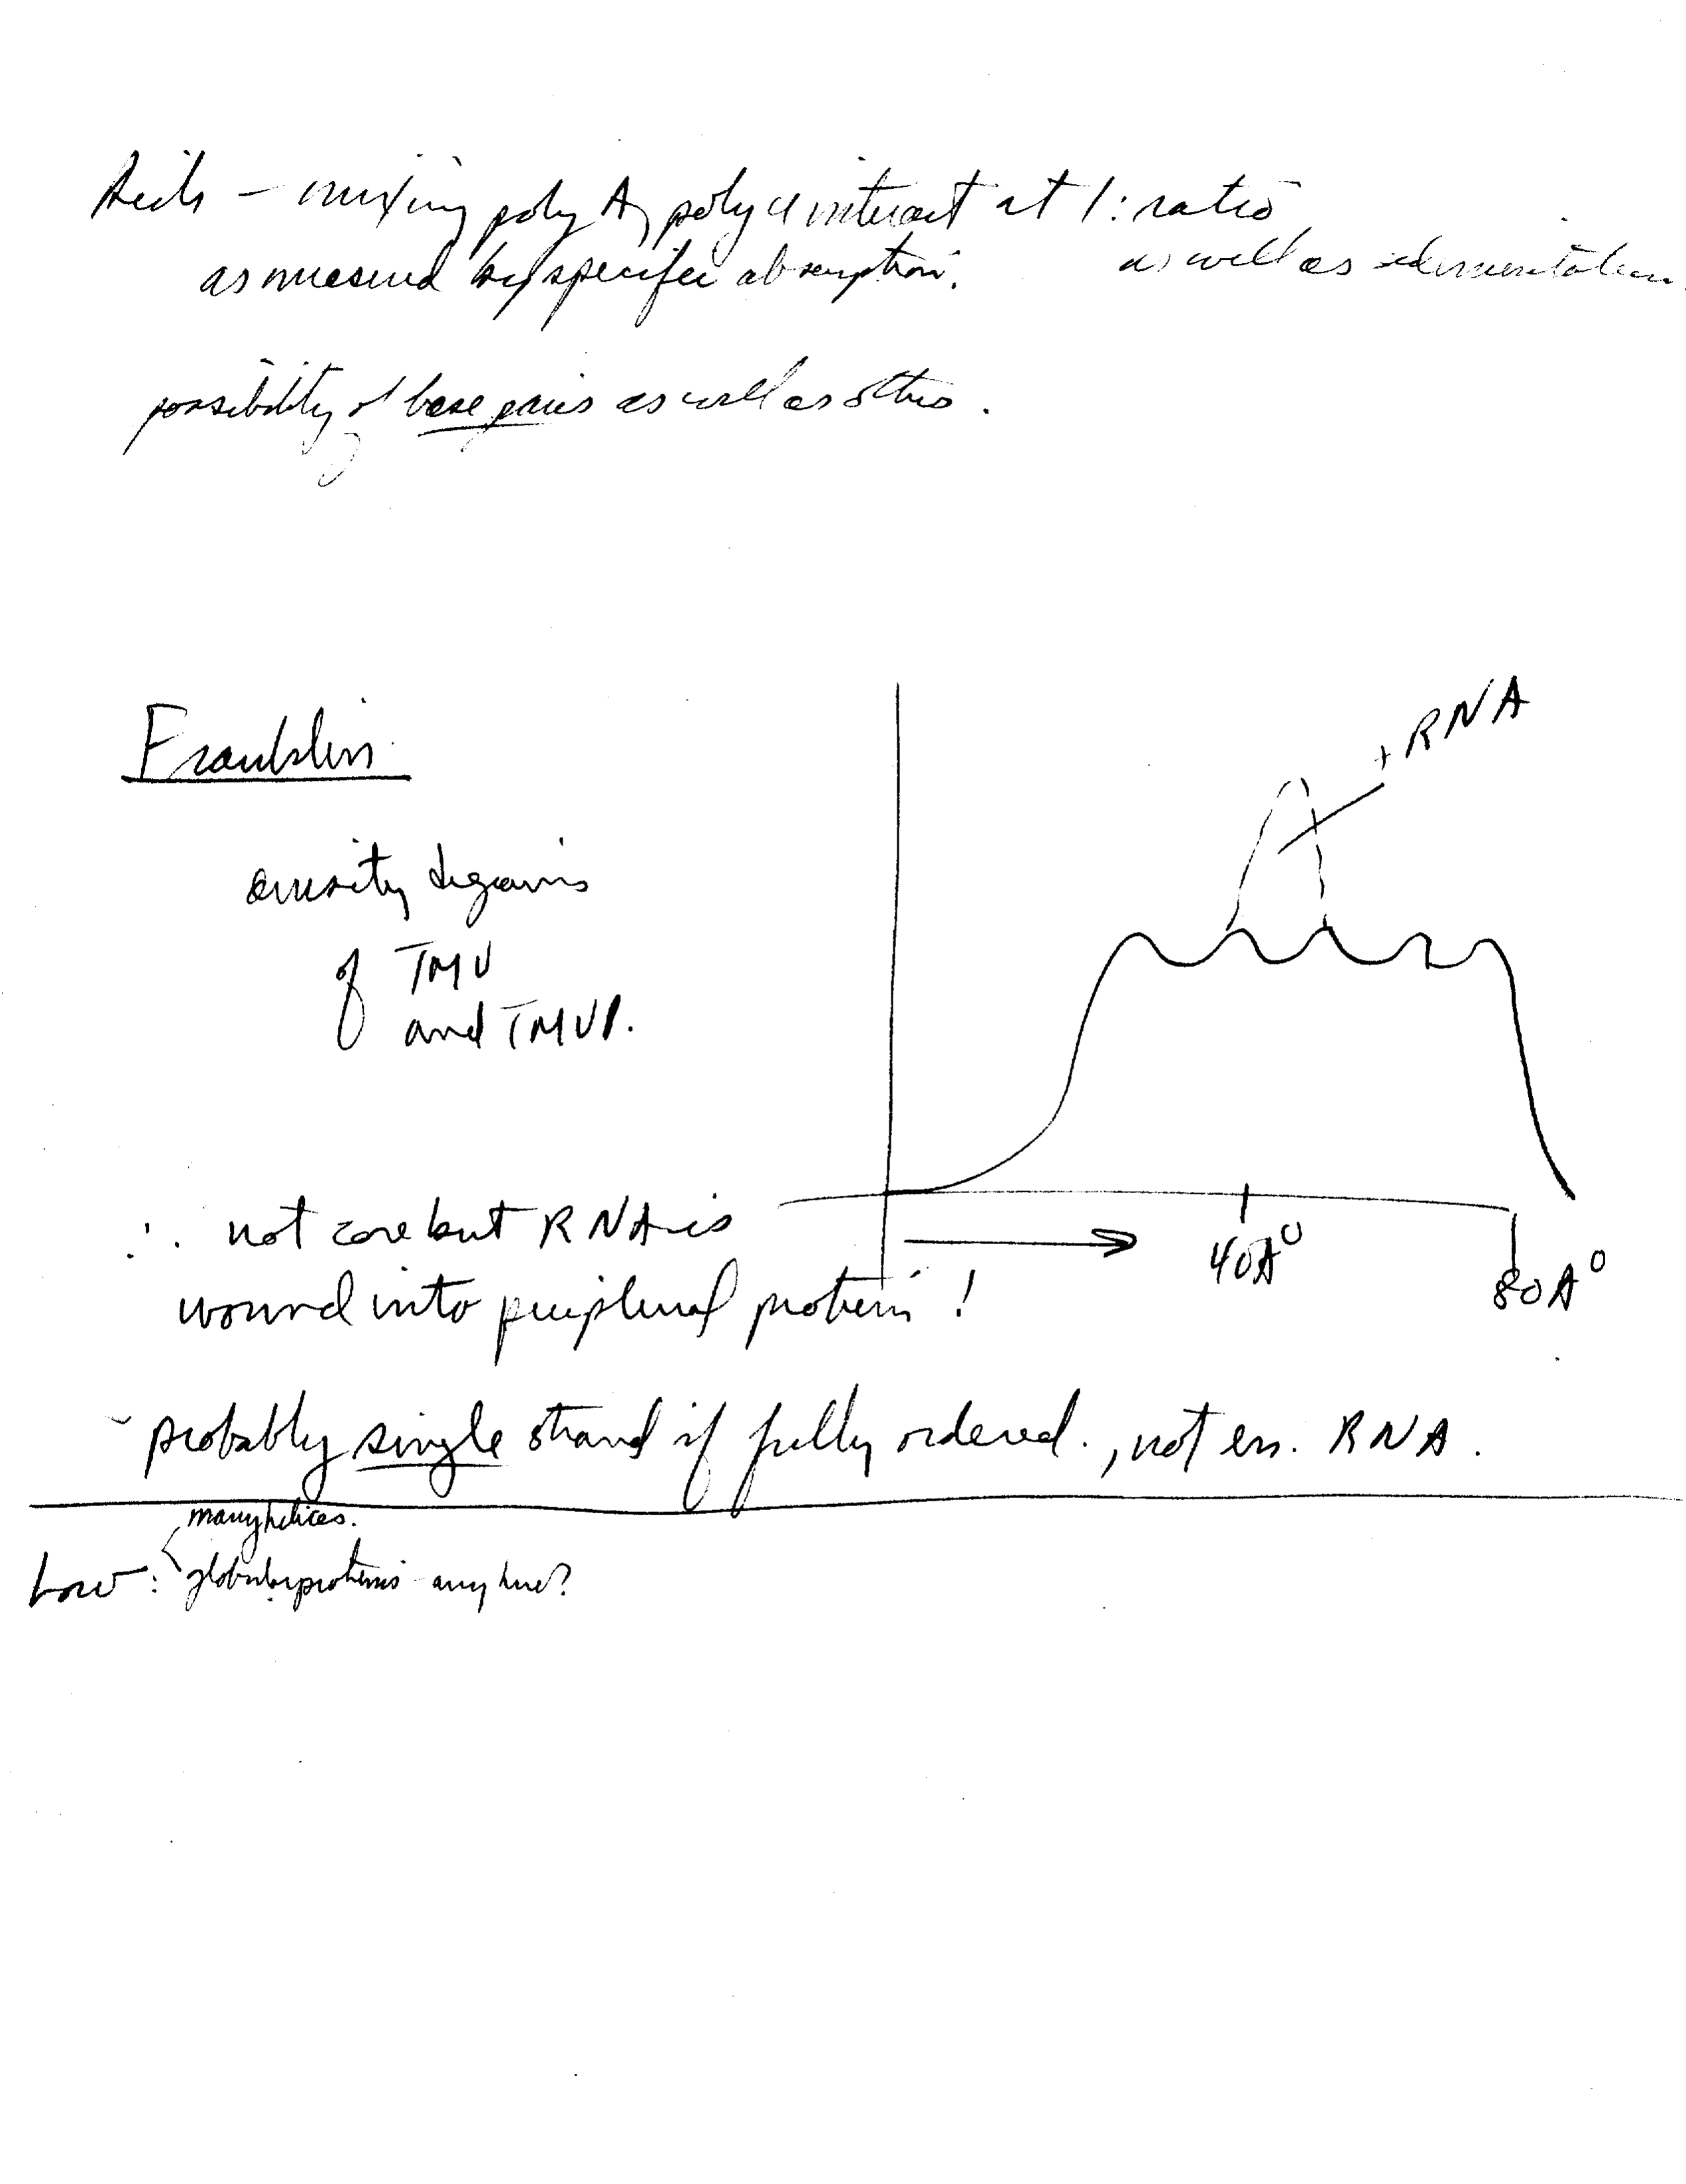 – mixing poly A, poly U interact at 1: ratio
as measured by specific absorption. as well as sedimentation.
possibility of base pairs as well as others.
+ RNA
Franklin
density diagrams
of TMV
and TMVP.
∴ not core but RNA is
wound into peripheral protein!
40A°
80A°
- probably single strand if fully ordered., not en. RNA.
many helices.
Low: globular proteins - any here?